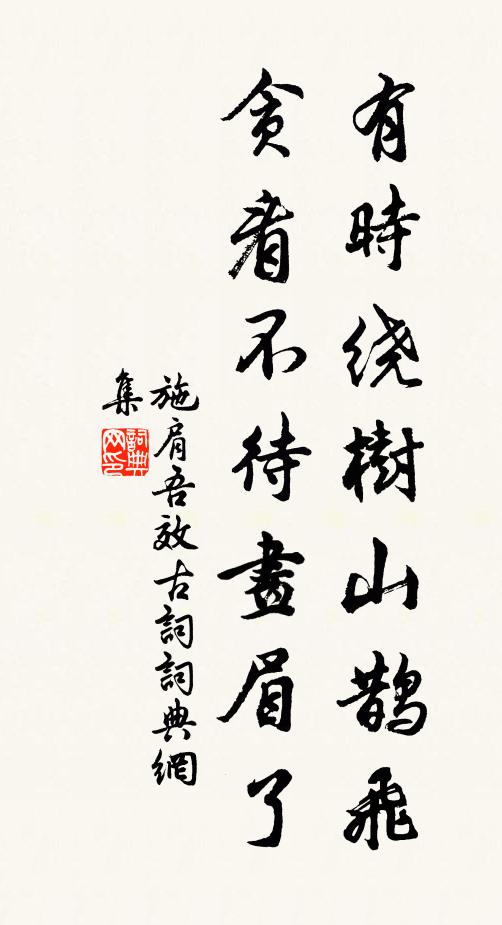 有時绕樹山鵲飛
貪看不待畫眉了
施肩吾效古詞詞典網
集
詞典网印